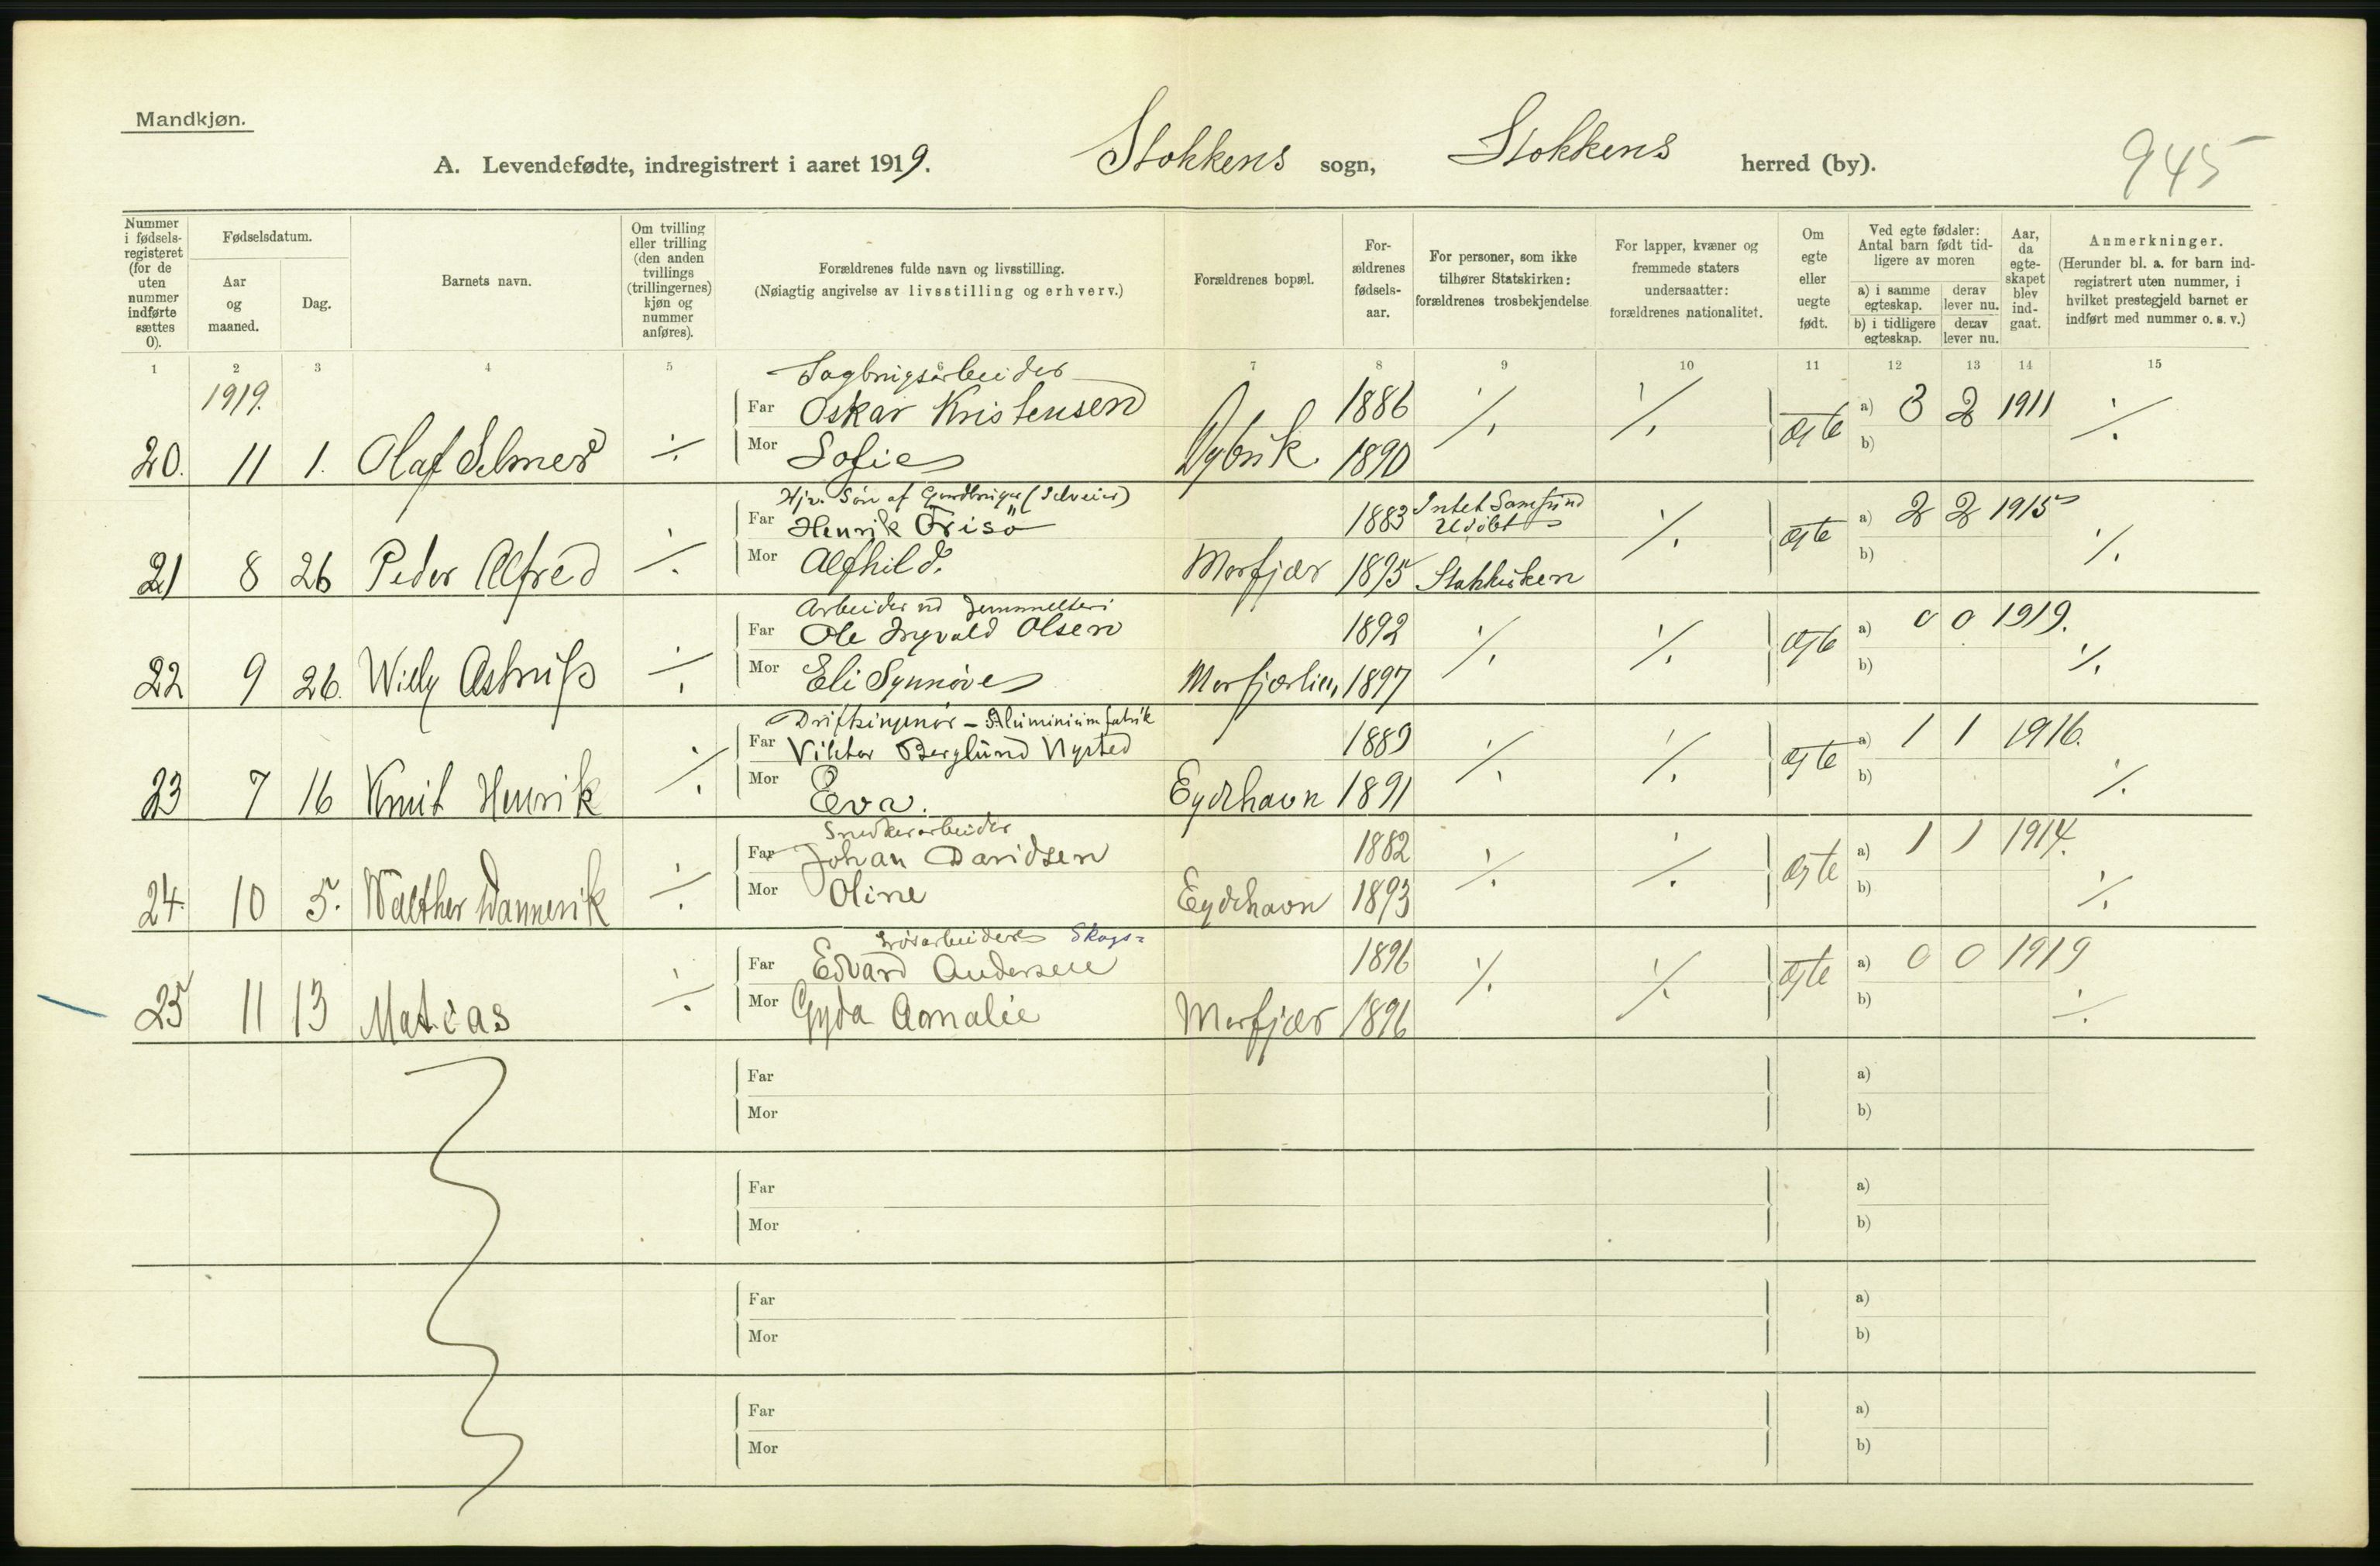 Mandkjøn.
A. Levendefødte, indregistrert i aaret 1919. Stokkens sogn, Stokkens herred (by). 945
Nummer i fødsels-registeret (for de uten nummer indførte sættes 0).
Fødselsdatum.
Aar og maaned.
Dag.
Barnets navn.
Om tvilling eller trilling (den anden tvillings (trillingernes) kjøn og nummer anføres).
Forældrenes fulde navn og livsstilling.
(Nøiagtig angivelse av livsstilling og erhverv.)
Forældrenes bopæl.
For-ældrenes fødsels-aar.
For personer, som ikke tilhører Statskirken: forældrenes trosbekjendelse.
For lapper, kvæner og fremmede staters undersaatter: forældrenes nationalitet.
Om egte eller uegte født.
Ved egte fødsler: Antal barn født tid-ligere av moren
a) i samme egteskap. derav lever nu.
b) i tidligere egteskap. derav lever nu.
Aar, da egte-skapet blev ind-gaat.
Anmerkninger.
(Herunder bl. a. for barn ind-registrert uten nummer, i hvilket prestegjeld barnet er indført med nummer o. s. v.)
1 2 3 4 5 6 7 8 9 10 11 12 13 14 15
1919.
Sagbrugsarbeider
Far Oskar Kristensen 1886 a) 3 2 1911
20. 11 1. Olaf Selmer ./. Mor Sofie Dybvik. 1890 ./. ./. egte b) ./.
Far Henrik Frisö 1883 Intet Samfund a) 2 2 1915
21 8 26 Peder Alfred ./. Mor Alfhild. Morfjær 1895 Statskirken ./. egte b) ./.
Arbeider ved
Far Ole Ingvald Olsen 1892 a) 0 0 1919.
22 9 26. Willy ./. Mor Eli Synnøve Morfjærlien, 1897 ./. ./. egte b) ./.
Driftsingeniør - Aluminiumfabrik
Far Viktor Berglund Nysted 1889 a) 1 1 1916.
23 7 16 Knut Henrik ./. Mor Eva. Eydehavn 1891 ./. ./. egte b) ./.
Snedkerarbeider
Far Johan Davidsen 1882 a) 1 1 1914.
24. 10 5. Walther ./. Mor Oline Eydehavn 1893 ./. ./. egte b) ./.
Skogs=
Far Edvard Andersen 1896 a) 0 0 1919
25 11 13 Matias ./. Mor Gyda Amalie Morfjær 1896 ./. ./. egte b) ./.
Far a)
Mor b)
Far a)
Mor b)
Far a)
Mor b)
Far a)
Mor b)